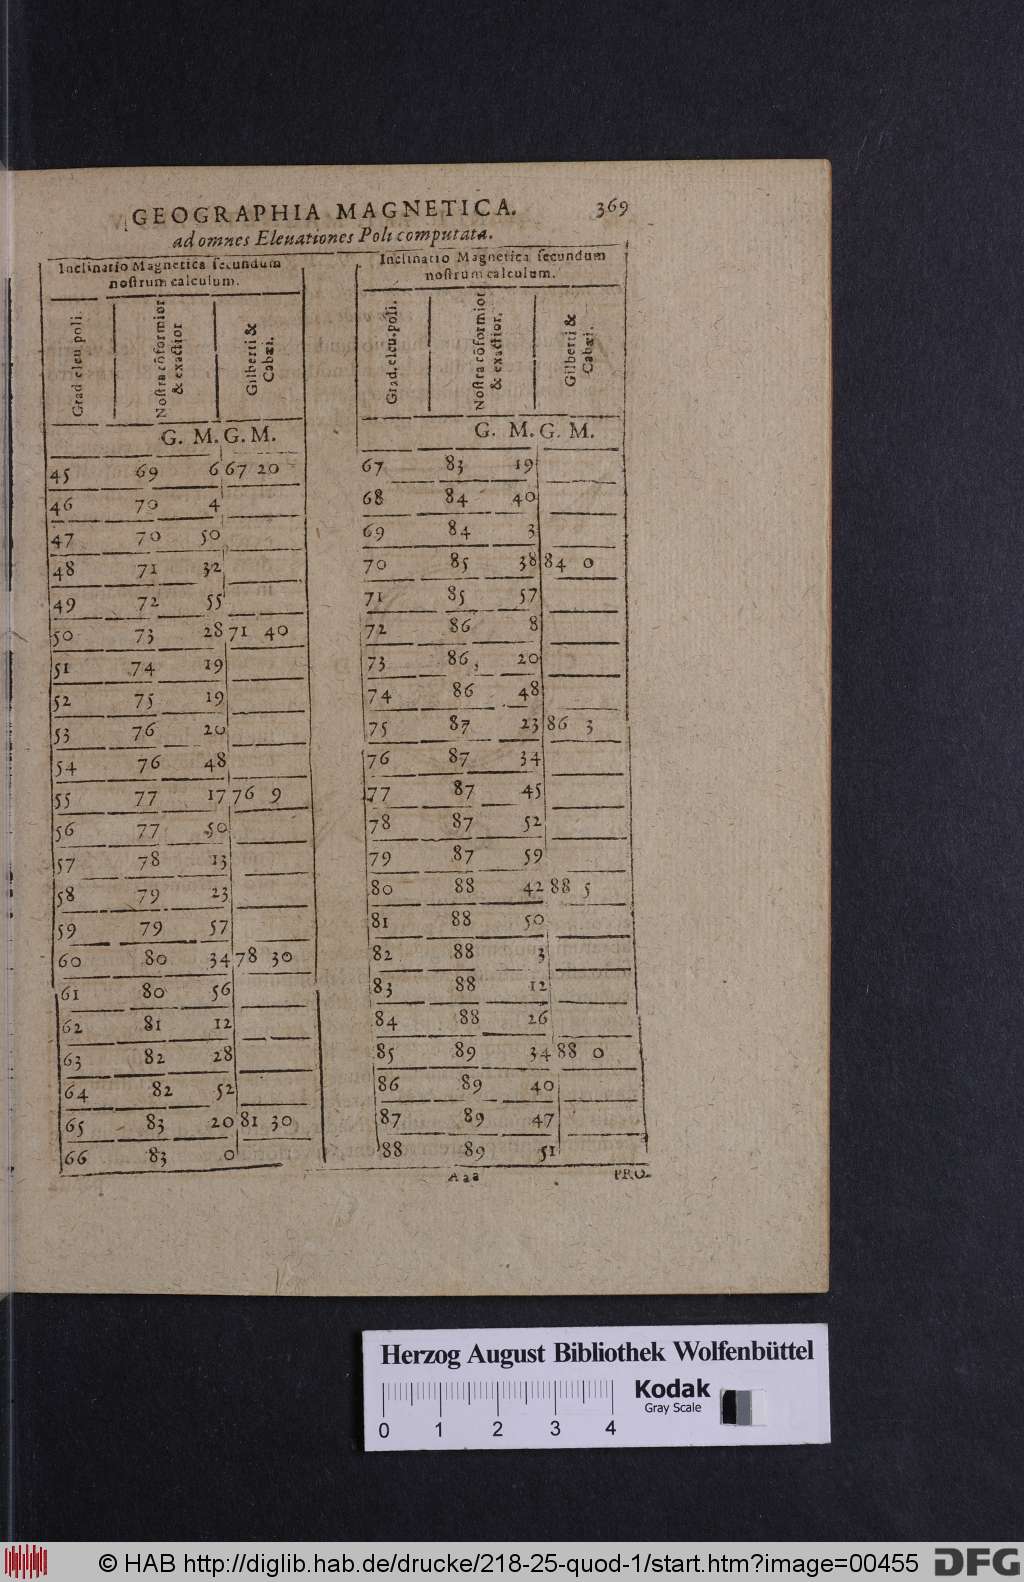 GEOGRAPHIA MAGNETICA. 369
ad omnes Eleuationes Poli computata.
Inclinatio Magnetica secundum
nostrum calculum.
Grad eleu poli.
Nostra cōformior
& exactior
Gilberti &
Cabæi.
G. M. G. M.
45 69 6 67 20
46 70 4
47 70 50
48 71 32
49 72 55
50 73 28 71 40
51 74 19
52 75 19
53 76 20
54 76 48
55 77 17 76 9
56 77 50
57 78 13
58 79 23
59 79 57
60 80 34 78 30
61 80 56
62 81 12
63 82 28
64 82 52
65 83 20 81 30
66 83 0
Inclinatio Magnetica secundum
nostrum calculum.
Grad. eleu. poli.
Nostra cōformior
& exactior.
Gilberti &
Cabæi.
G. M. G. M.
67 83 19
68 84 40
69 84 3
70 85 38 84 0
71 85 57
72 86 8
73 86 20
74 86 48
75 87 23 86 3
76 87 34
77 87 45
78 87 52
79 87 59
80 88 42 88 5
81 88 50
82 88 3
83 88 12
84 88 26
85 89 34 88 0
86 89 40
87 89 47
88 89 51
Aaa PRO-
Herzog August Bibliothek Wolfenbüttel
Kodak
Gray Scale
0 1 2 3 4
© HAB http://diglib.hab.de/drucke/218-25-quod-1/start.htm?image=00455
DFG